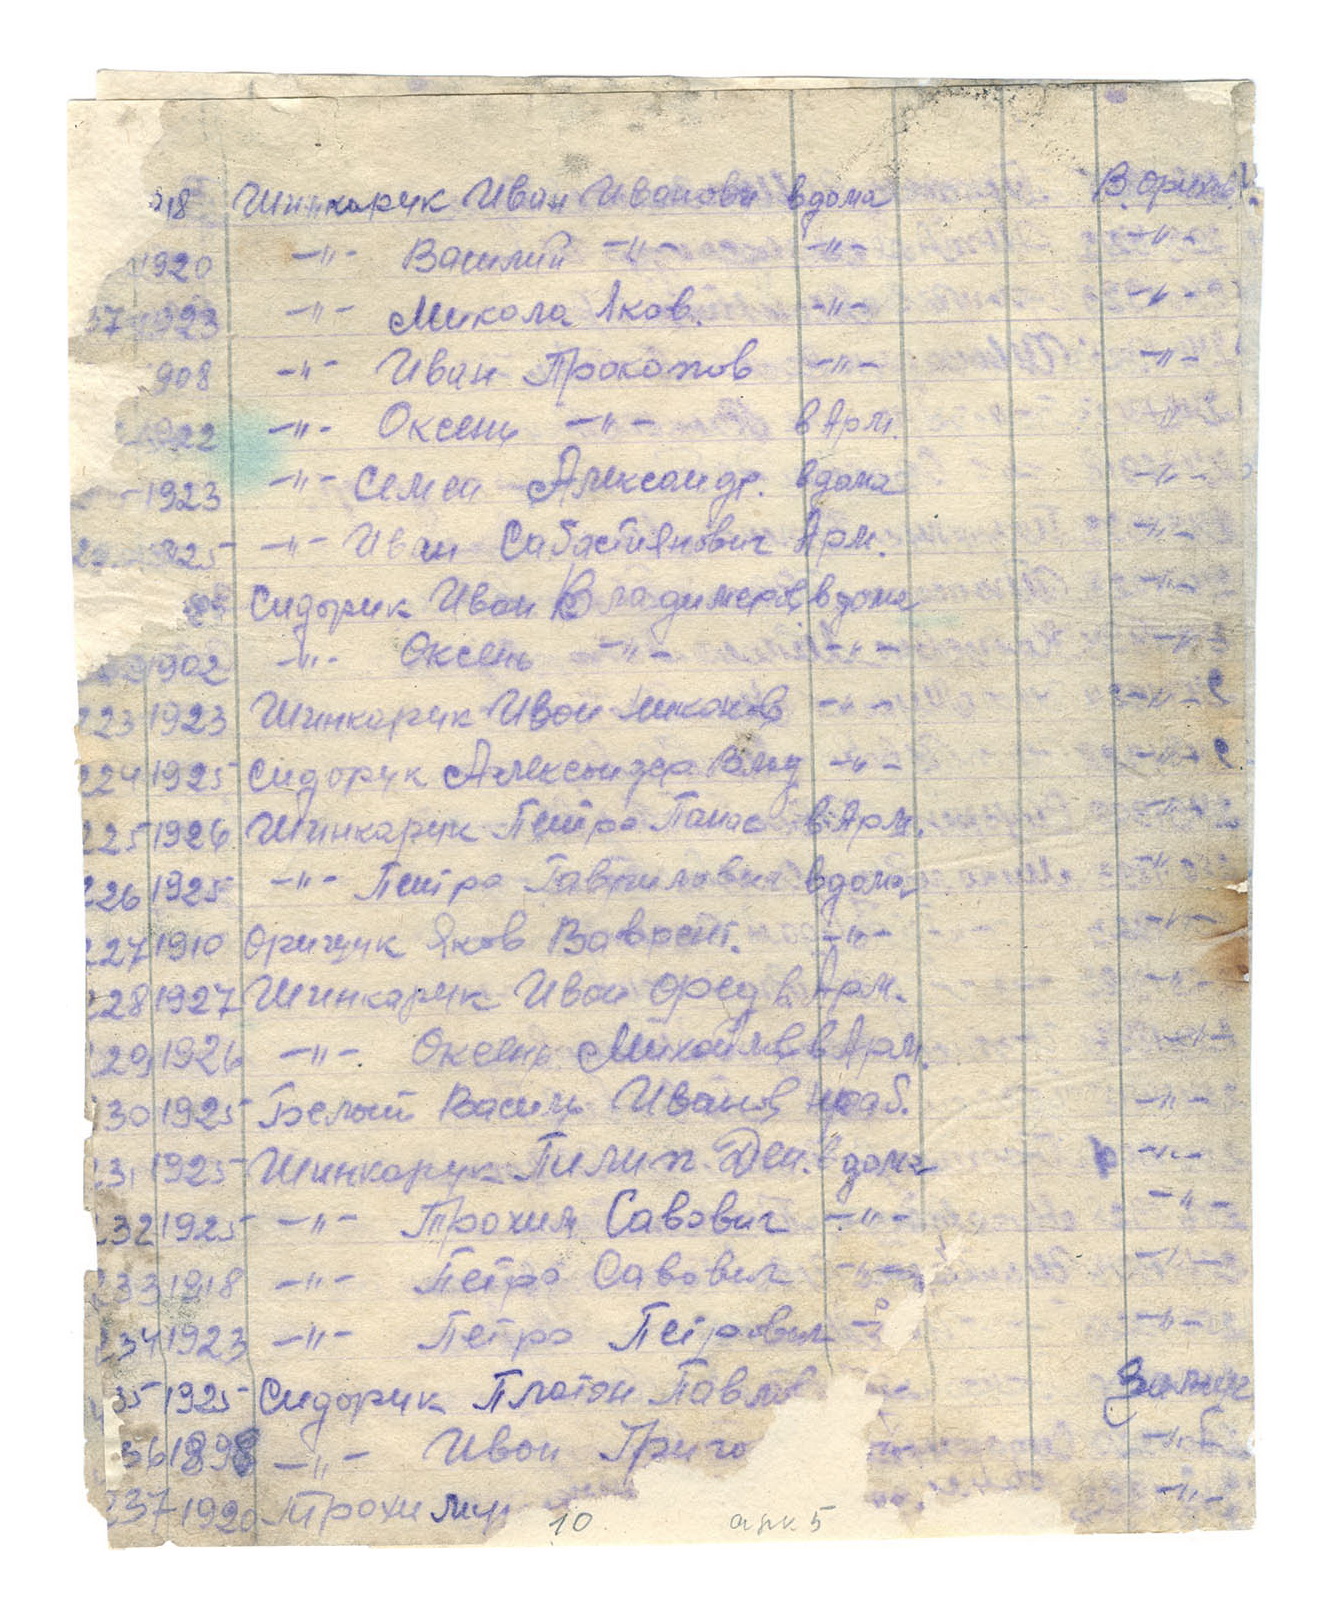 918 Шинкарук Иван Иванови вдома В. Орихов.
1920 -"- Василий -"- -"- -"-
1923 -"- Микола Яков. -"- -"-
908 -"- Иван Прокопов -"- -"-
1922 -"- Оксень -"- в Арм. "
1923 -"- Семен Александр. вдома -"-
25 -"- Иван Сабастиянович Арм. -"-
Сидорук Иван Владимеров вдома -"-
1902 -"- Оксень -"- -"- -"-
223 1923 Шинкарук Иван -"- -"-
224 1925 Сидорук Александер Влад -"- -"-
225 1926 Шинкарук Петро Панас в Арм. -"-
226 1925 -"- Петро Гаврилович вдома -"-
227 1910 Орищук Яков Ваврент. -"- -"-
228 1927 Шинкарук Иван Фед в Арм. -"-
229 1926 -"- Оксень Михайлов в Арм. -"-
230 1925 Белый Василь Иванов -"-
231 1925 Шинкарук Пилип Дем. вдома -"-
232 1925 -"- Трохим Савович -"- -"-
233 1918 -"- Петро Савович -"- -"-
234 1923 -"- Петро Петрович -"-
35 1925 Сидорук Платон Павлов
36 1898 -"- Иван Григо -"-
237 1920 -"-
10 арк 5